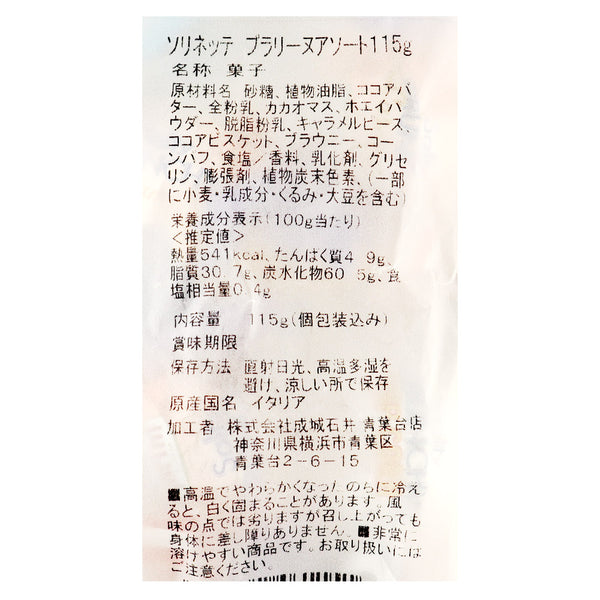 ソリネッテ プラリーヌアソート115g
名称 菓子
原材料名 砂糖、植物油脂、ココアバ
ター、全粉乳、カカオマス、ホエイパ
ウダー、脱脂粉乳、キャラメルピース、
ココアビスケット、ブラウニー、コー
ンパフ、食塩／香料、乳化剤、グリセ
リン、膨張剤、植物炭末色素、(一部
に小麦・乳成分・くるみ・大豆を含む)
栄養成分表示(100g当たり)
<推定値>
熱量541kcal、たんぱく質4 9g、
脂質30.7g、炭水化物60 5g、食
塩相当量0.4g
内容量 115g(個包装込み)
賞味期限
保存方法 直射日光、高温多湿を
避け、涼しい所で保存
原産国名 イタリア
加工者 株式会社成城石井 青葉台店
神奈川県横浜市青葉区
青葉台2-6-15
■高温でやわらかくなったのちに冷え
ると、白く固まることがあります。風
味の点では劣りますが召し上がっても
身体に差し障りありません。■非常に
溶けやすい商品です。お取り扱いには
ご注意ください。